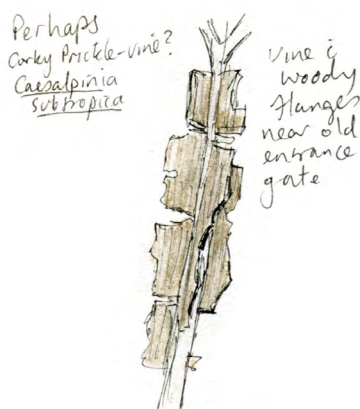 Perhaps
Corky Prickle-vine?
Caesalpinia
subtropica
Vine c̄
woody
flanges
near old
entrance
gate